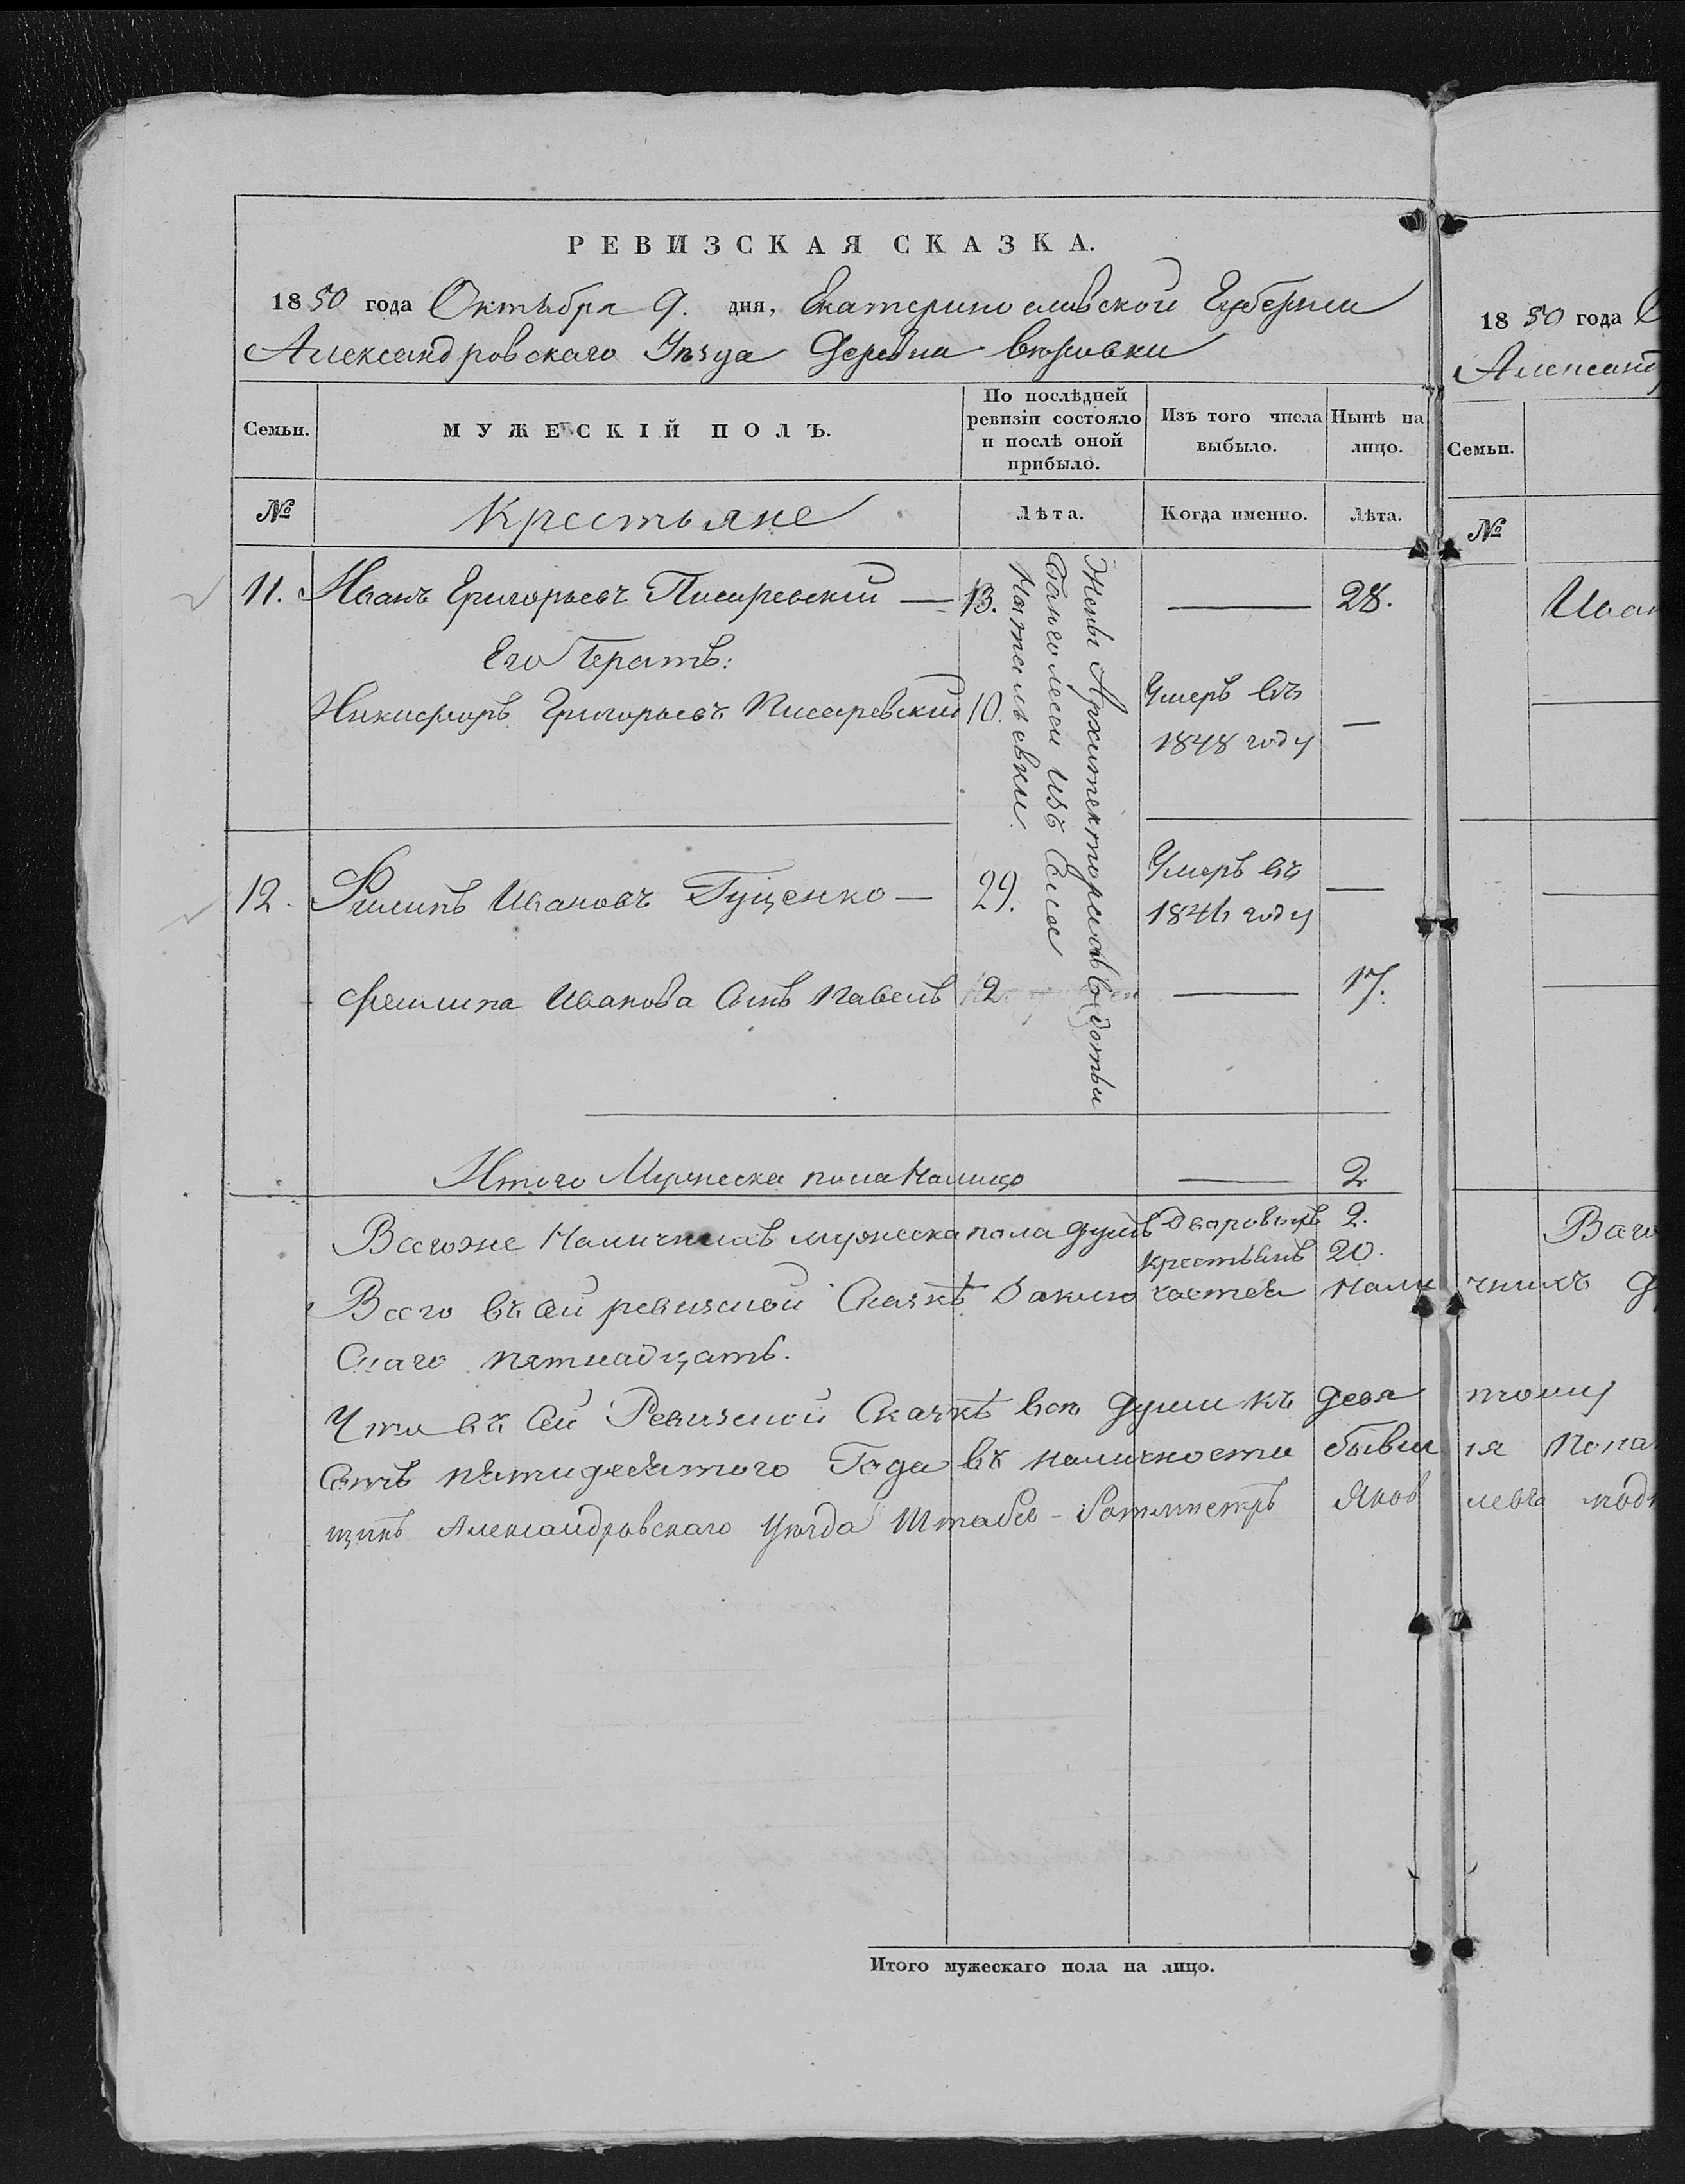 РЕВИЗСКАЯ СКАЗКА.
1850 года Октября 9. дня, Екатеринославской Губернии
Александровскаго Уѣзда Деревни
Семьи.
МУЖЕСКІЙ ПОЛЪ.
По послѣдней ревизіи состояло и послѣ оной прибыло.
Изъ того числа выбыло.
Нынѣ на лицо.
№
Крестьяне
Лѣта.
Когда именно.
Лѣта.
11. Иванъ Григорьевъ Писаревский — 13. — 28.
Его братъ:
Никифоръ Григорьевъ Писаревский 10. Умеръ въ 1848 году —
Жены Архитекторши Авдотьи
изъ Села
Натальевки.
12. Филипъ Ивановъ Гущенко — 29. Умеръ въ 1846 году —
Филипа Иванова Сынъ Павелъ 2 — 17.
Итого Мужеска пола Налицо — 2
Всегоже Наличныхъ мужеска пола душъ дворовыхъ 2.
крестьянъ 20.
Всего въ сей ревизской Сказкѣ Заключается нали чныхъ
скаго пятнадцать.
Что въ сей Ревизской Сказкѣ всѣ души къ девя тому
сотъ пятидесятого Года въ наличности бывш ія
щикъ Александровскаго Уѣзда Штабсъ-Ротмистръ Яков левъ
Итого мужескаго пола на лицо.
1850 года
Александ
Семьи.
№
Иван
Всего